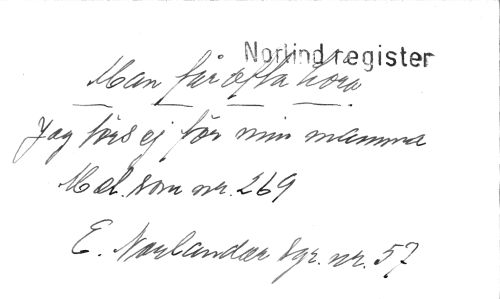 Norlind register
Man får ofta höra
Jag törs ej för min mamma
Mel. som nr. 269
E. Norlander sgr. nr. 57